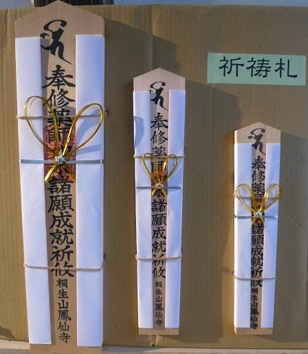 奉修薬師諸願成就祈攸
桐生山鳳仙寺
奉修薬師諸願成就祈攸
桐生山鳳仙寺
奉修薬諸願成就祈攸
桐生山鳳仙寺
祈祷札